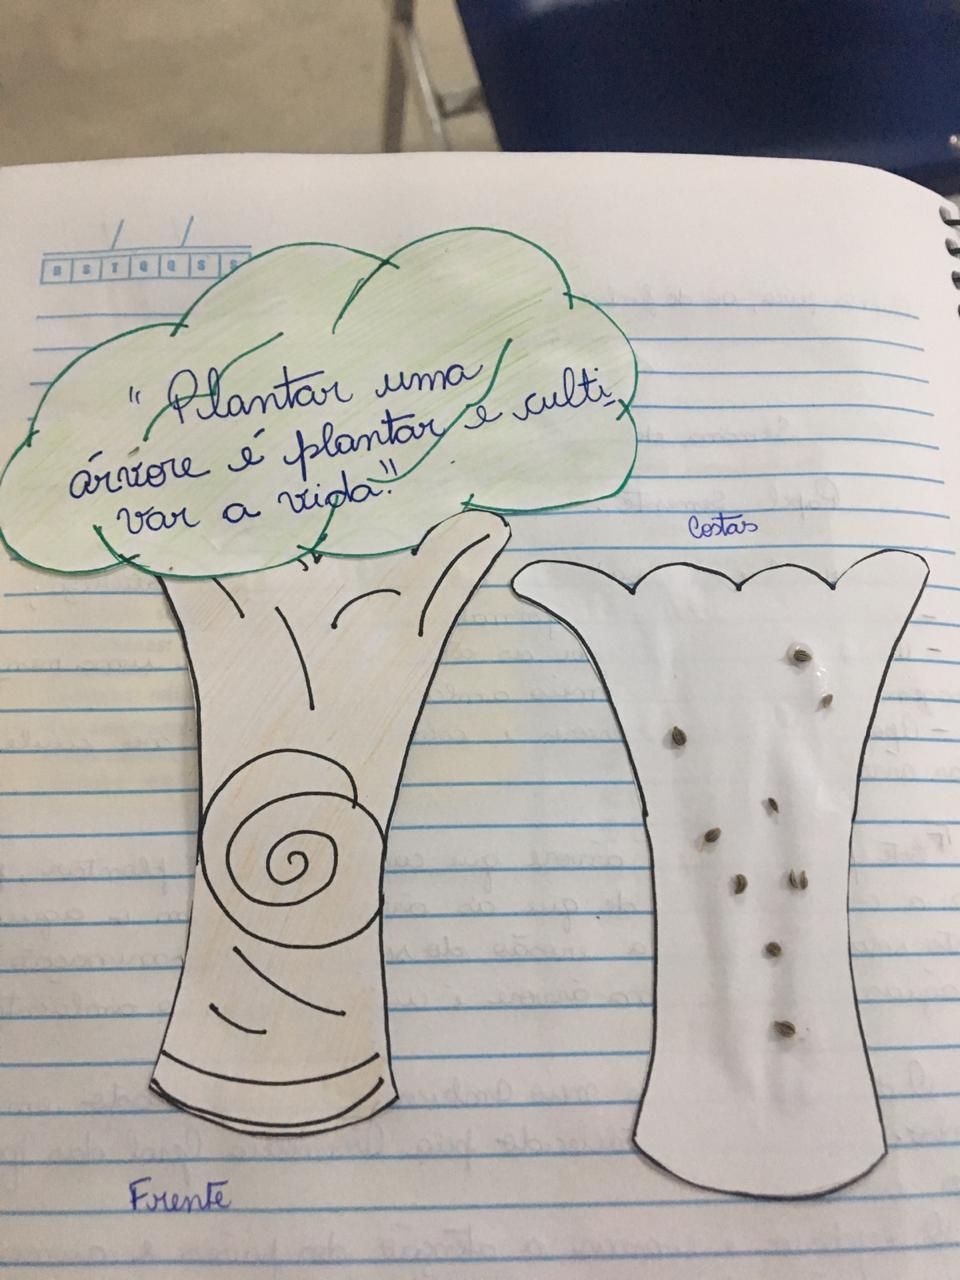 D S T Q Q S S
" Plantar uma
árvore é plantar e culti
var a vida."
Costas
Frente